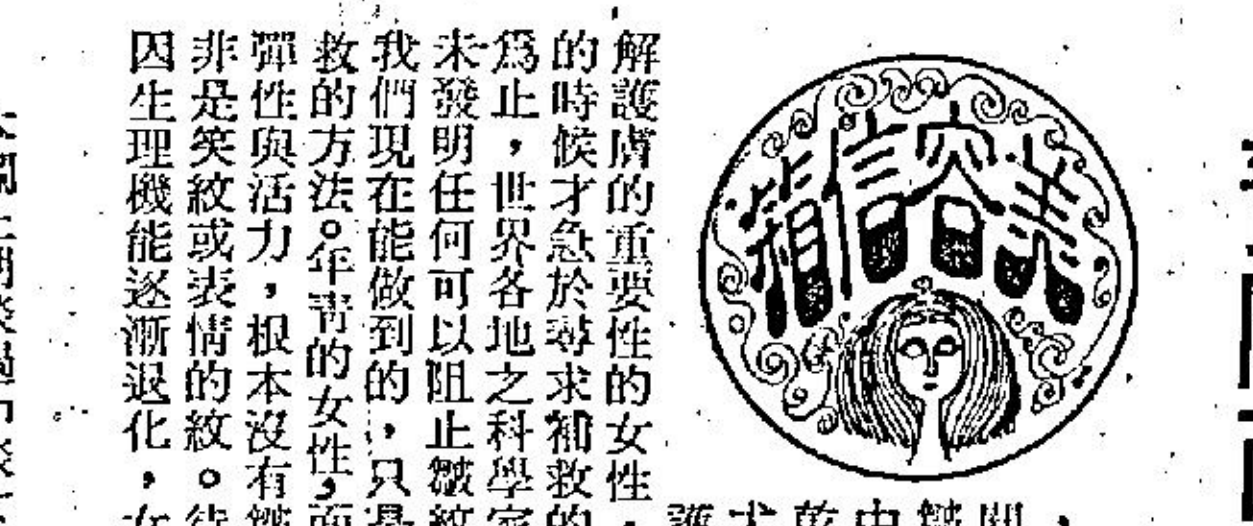 美容信箱
解護膚的重要性的女性，
的時候才急於尋求補救的
爲止，世界各地之科學家
未發明任何可以阻止皺紋
我們現在能做到的，只是
救的方法。年青的女性，面
彈性與活力，根本沒有皺
非是笑紋或表情的紋。待
因生理機能逐漸退化，女